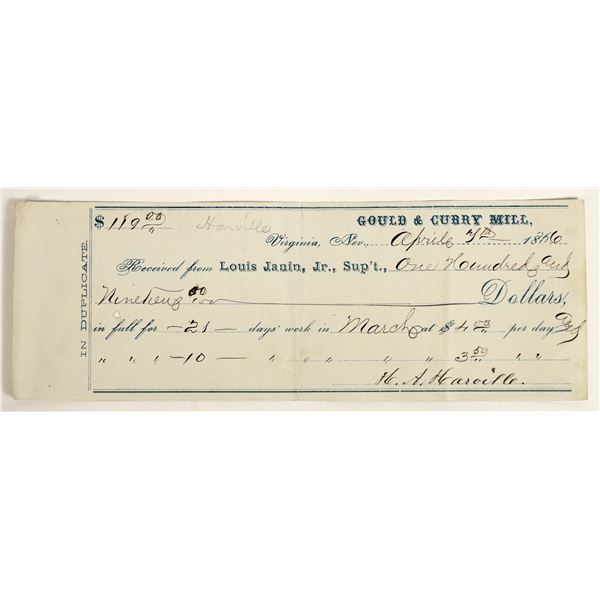 IN DUPLICATE.
$119.00 Harville GOULD & CURRY MILL,
Virginia, Nev., April 7th 1866
Received from Louis Janin, Jr., Sup't., One Hundred and
Nineteen 00/100 Dollars,
in full for -21- days' work in March at $4.00 per day and
" " " -10- " " " " " 3.50 " "
H. A. Harville.